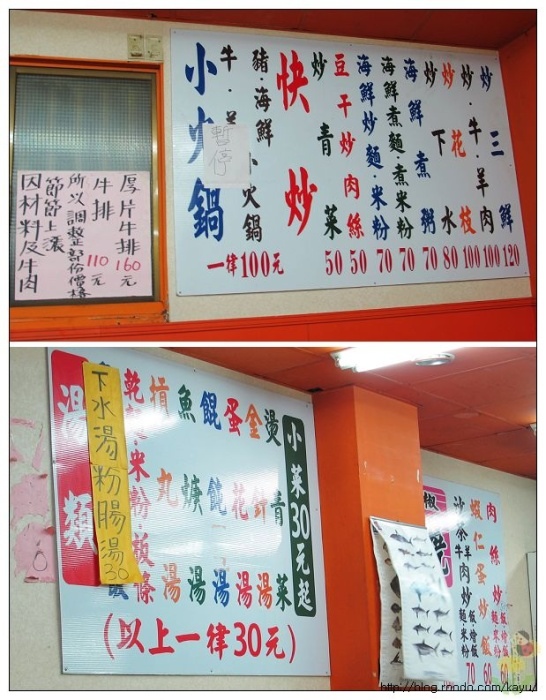 小火鍋
牛·羊
豬·海鮮
小火鍋
暫停
一律100元
快炒
炒青菜 50
豆干炒肉絲 50
海鮮炒麵·米粉 70
海鮮煮麵·煮米粉 70
海鮮煮粥 70
炒下水 80
炒花枝 100
炒·牛·羊肉 100
炒三鮮 120
因材料及牛肉
節節上漲
所以調整部份價格
牛排 110元
厚片牛排 160元
湯類
下水湯粉腸湯30
米粉·粄條
摃丸湯
魚焿湯
餛飩湯
蛋花湯
金針湯
燙青菜
小菜30元起
(以上一律30元)
沙茶牛羊肉炒麵·飯·米粉 70
蝦仁蛋炒飯 60
肉絲炒
飯·燴飯
http://blog.roodo.com/kayu/